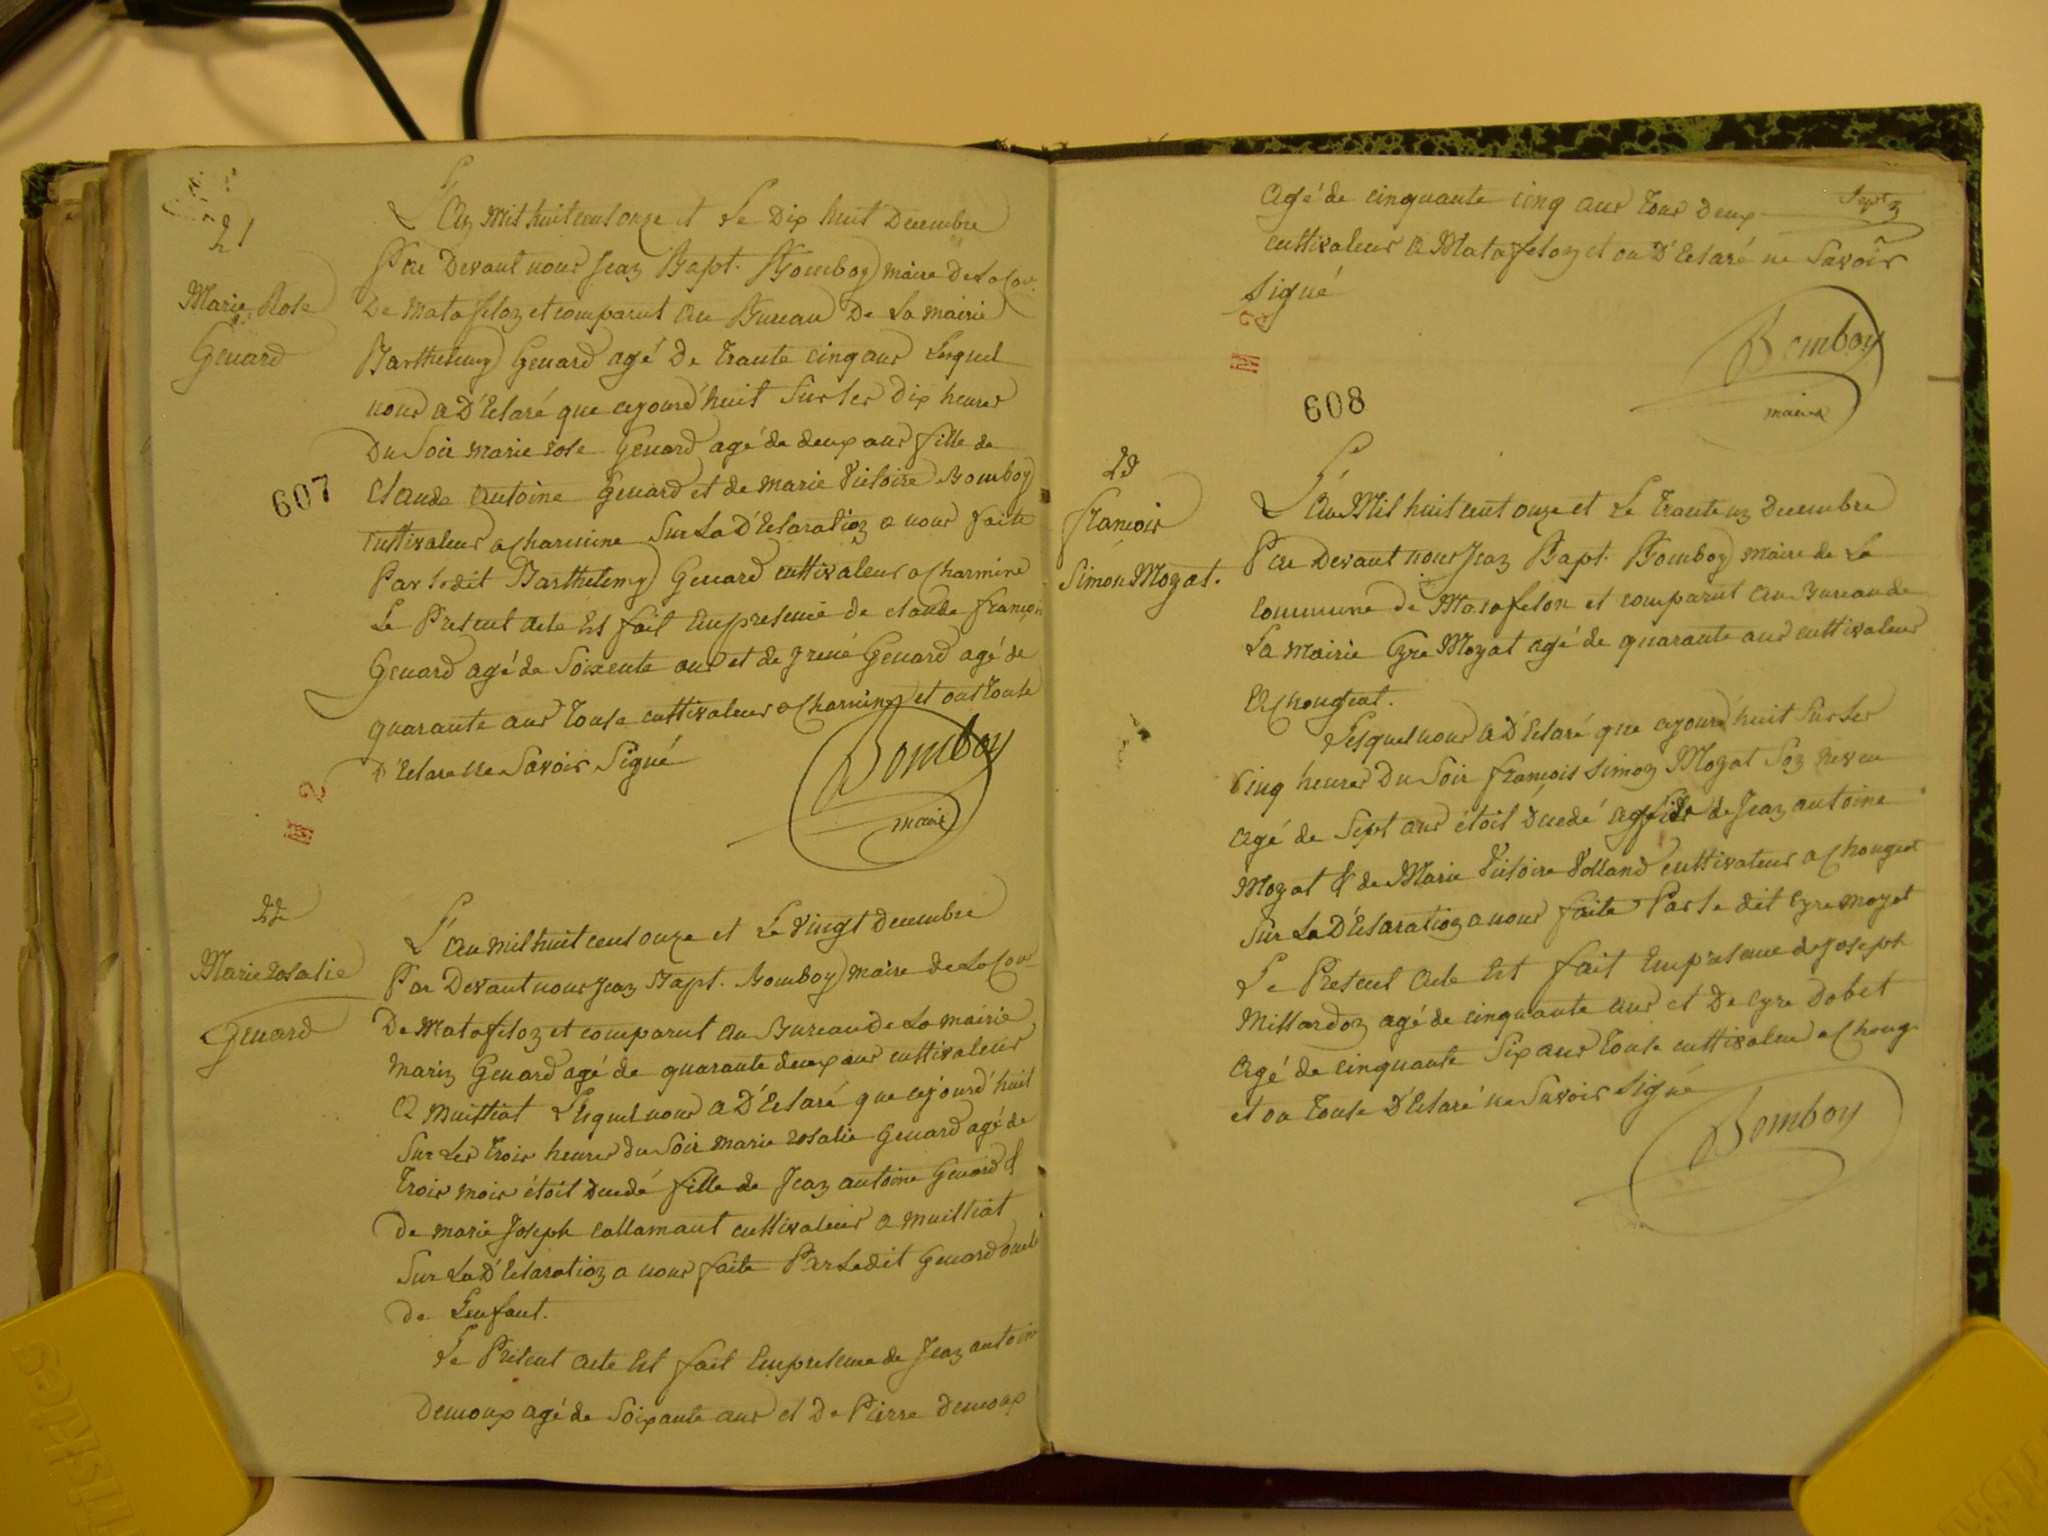 21
Marie Rose
Genard
607
L'An Mil huit cent onze et Le Dix huit Decembre
Par Devant nous Jean Bapt. Bomboy maire De La Com.
De Matafelon et comparut Au Bureau De La mairie
Barthelemy Genard agé De trante cinq ans Lesquel
nous a D'Eclaré que cejourd'huit Sur les Dix heures
Du Soir marie rose Genard agé de deux ans fille de
Claude antoine Genard et de marie Victoire Bomboy
Cultivateur a Charmine Sur La D'Eclaration a nous faite
Par Ledit Barthelemy Genard cultivateur a Charmine
Le Présent acte Est fait Enpresence de claude françois
Genard agé de Soixente ans et de Genard agé de
quarante ans touse cultivateur a Charmine et ont touse
D'Eclare ne Savoir Signé
Bomboy
maire
22
Marie rosalie
Genard
L'an mil huit cent onze et Le vingt decembre
Par Devant nous Jean Bapt. Bomboy maire de La Com
De Matafelon et comparut Au Bureau De La mairie
marin Genard agé de quarante deux ans cultivateur
A muittiat Lesquel nous a D'Eclaré que cejourd'huit
Sur Les trois heures du Soir marie rosalie Genard agé de
trois mois étoit Decédé fille de Jean antoine Genard &
de marie Joseph Callamant cultivateur a muittiat
Sur La D'Eclaration a nous faite Par Ledit Genard oncle
de Lenfant.
Le Présent acte Est fait Enpresence de Jean antoine
Demoux agé de Soixante ans et De Pierre Demoux
Agé de cinquante cinq ans tous Deux
cultivateur A Matafelon et on D'Eclaré ne Savoir
Signé
Bomboy
maire
608
23
françois
Simon Mozat.
L'An Mil huit cent onze et Le trante un Decembre
Par Devant nous Jean Bapt. Bomboy maire de La
Commune de Matafelon et comparut Au Bureau de
La mairie Cyre Mozat agé de quarante ans cultivateur
A Chougeat.
Lesquel nous a D'Eclaré que cejourd'huit Sur Les
Cinq heures Du Soir françois Simon Mozat Son neveu
Agé de Sept ans étoit Decedé de Jean antoine
Mozat & de Marie Victoire Volland cultivateur a Chougeat
Sur La D'Eclaration a nous faite Par Le dit Cyre mozat
Le Présent Acte Est fait Enpresence de Joseph
Millardon agé de cinquante ans et De Cyre Dobet
Agé de cinquante Six ans touse cultivateur a Choug.
et on touse D'Eclaré ne Savoir Signé
Bomboy